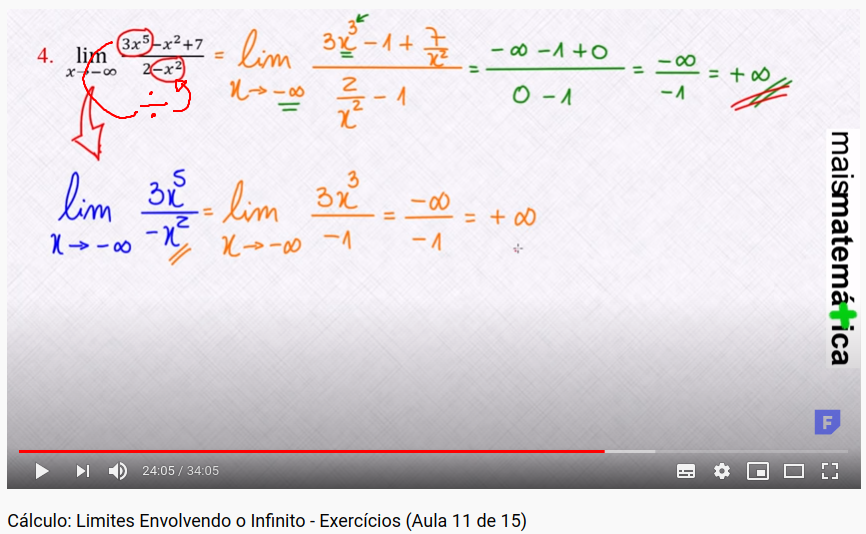 4. lim x→−∞ (3x⁵−x²+7)/(2−x²) = lim x→−∞ (3x³ − 1 + 7/x²)/(2/x² − 1) = (−∞ −1 +0)/(0 −1) = −∞/−1 = +∞
÷
lim x→−∞ 3x⁵/−x² = lim x→−∞ 3x³/−1 = −∞/−1 = +∞
maismatemática
F
24:05 / 34:05
Cálculo: Limites Envolvendo o Infinito - Exercícios (Aula 11 de 15)